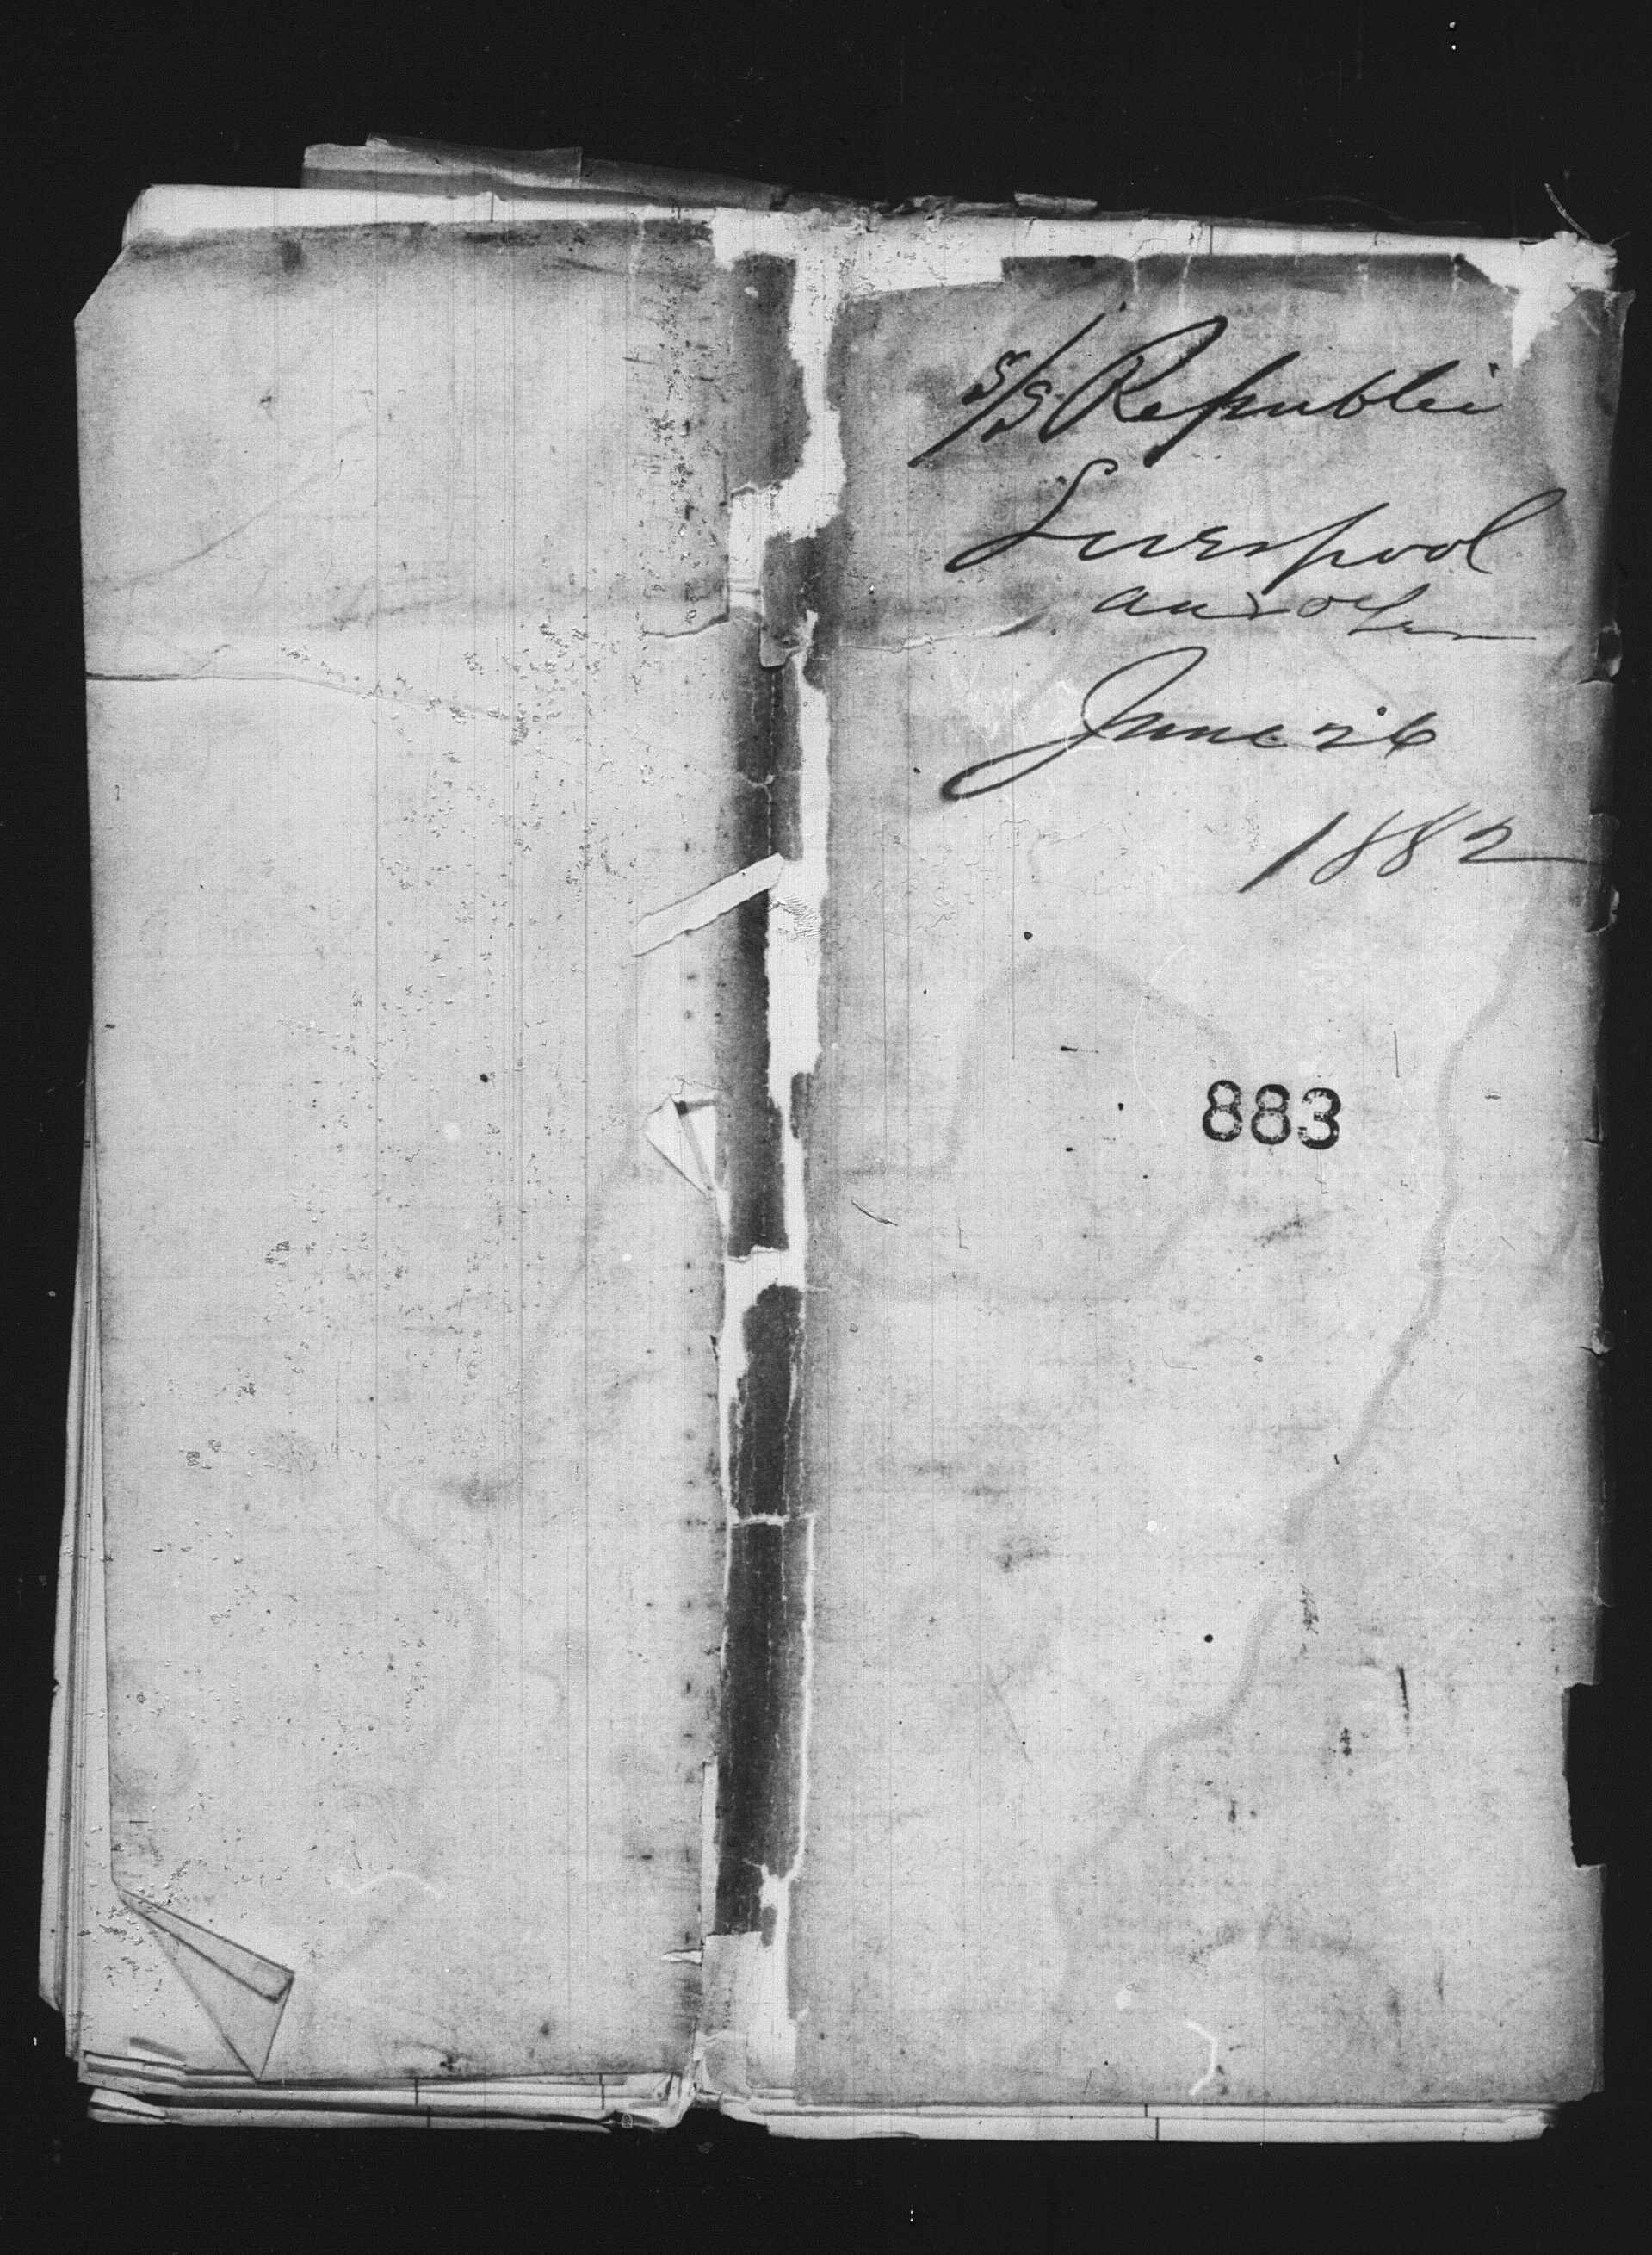 S/S Republic
Liverpool
June 26
1882
883